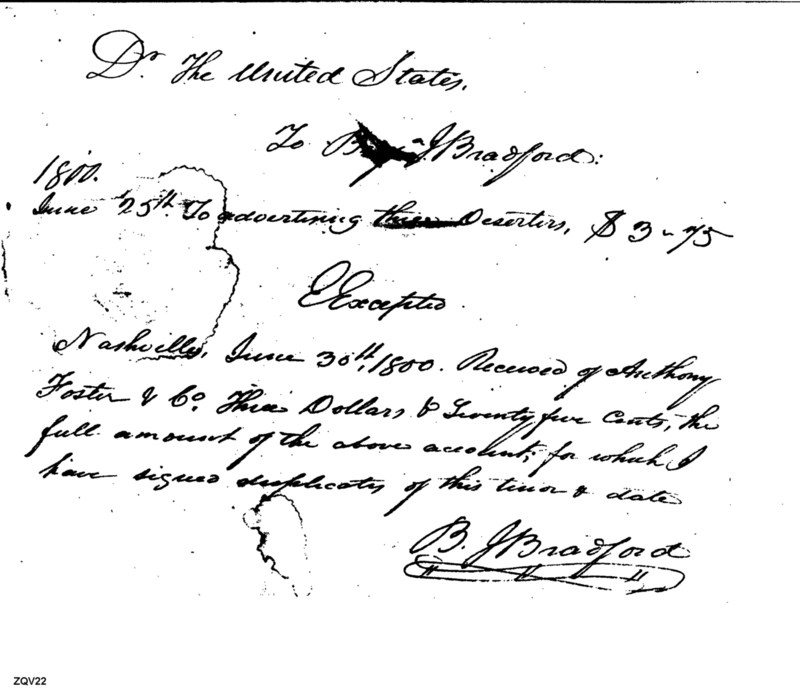 Dr. The United States,
To B J Bradford:
1800.
June 25th. To advertising three Deserters, $ 3-75
EExcepted
Nashville, June 30th, 1800. Received of Anthony
Foster & Co. Three Dollars & Seventy five Cents, the
full amount of the above account, for which I
have signed duplicates of this tenor & date
B. J Bradford
ZQV22